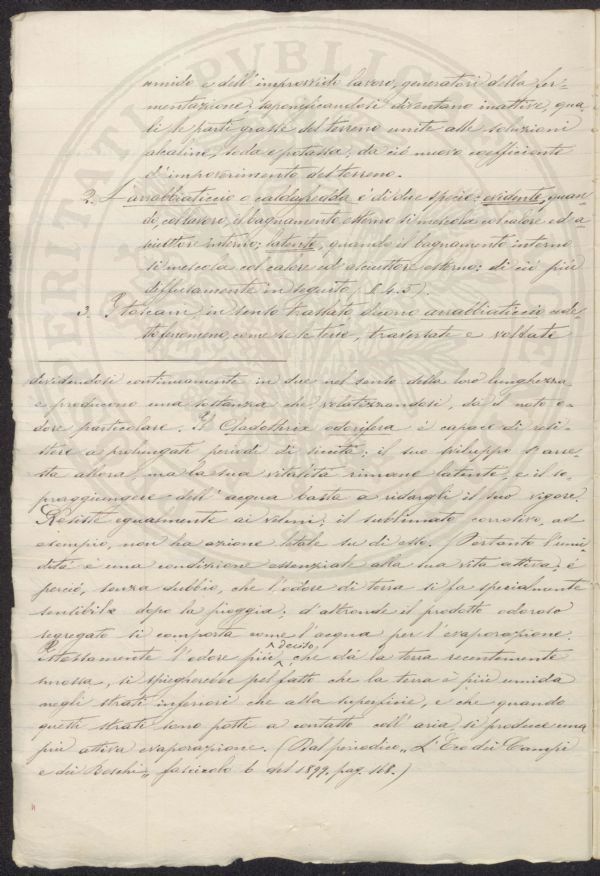 umido e dell'improvvido lavoro, generatori della fer-
mentazione, saponificandosi diventano inattive, qua-
li le parti grasse del terreno unite alle soluzioni
alcaline, soda e potassa; da ciò nuovo coefficiente
d'impoverimento del terreno.
2. L'arrabbiaticcio o caldafredda è di due specie: evidente, quan-
do, col lavoro, il bagnamento esterno si mescola col calore ed a-
sciuttore interno; latente, quando il bagnamento interno
si mescola col calore ed asciuttore esterno: di ciò più
diffusamente in seguito, (§. 4. 5).
3. I toscani, in senso traslato dicono arrabbiaticcio code-
sto fenomeno, come se le terre, traversate e voltate
dividendosi continuamente in due nel senso della loro lunghezza
e producono una sostanza che, volatizzandosi, dà il noto o-
dore particolare. Il Cladothrix odorifera è capace di resi-
stere a prolungati periodi di siccità; il suo sviluppo s'arre-
sta allora, ma la sua vitalità rimane latente, e il so-
praggiungere dell'acqua basta a ridargli il suo vigore.
Resiste egualmente ai veleni; il sublimato corrosivo, ad
esempio, non ha azione letale su di esso. Pertanto l'umi-
dità è una condizione essenziale alla sua vita attiva; è
perciò, senza dubbio, che l'odore di terra si fa specialmente
sensibile dopo la pioggia; d'altronde il prodotto odoroso
segregato si comporta come l'acqua per l'evaporazione.
l'odore più deciso, che dà la terra recentemente
smossa, si spiegherebbe pel fatto che la terra è più umida
negli strati inferiori che alla superficie, e che quando
questi strati sono posti a contatto coll'aria, si produce una
più attiva evaporazione. (Dal periodico „L'Eco dei Campi
e dei Boschi„ fascicolo 6 del 1899. pag. 168.)